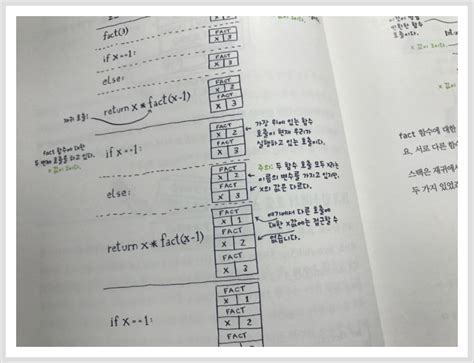 fact(3)
FACT
X 3
if x==1:
FACT
X 3
else:
FACT
X 3
return x * fact(x-1)
FACT
X 2
FACT
X 3
재귀 호출!
fact 함수에 대한
두 번째 호출을 하고 있다.
X 값이 2이다.
if x==1:
FACT
X 2
FACT
X 3
가장 위에 있는 함수
호출이 현재 우리가
실행하고 있는 호출이다.
else:
FACT
X 2
FACT
X 3
주의: 두 함수 호출 모두 x라는
이름의 변수를 가지고 있지만,
x의 값은 다르다.
return x * fact(x-1)
FACT
X 1
FACT
X 2
FACT
X 3
여기에서 다른 호출에
대한 x값에는 접근할 수
없습니다.
if x==1:
FACT
X 1
FACT
X 2
FACT
X 3
호출이다.
fact 함수에 대한
요. 서로 다른 함수
스택은 재귀에서
두 가지 있었